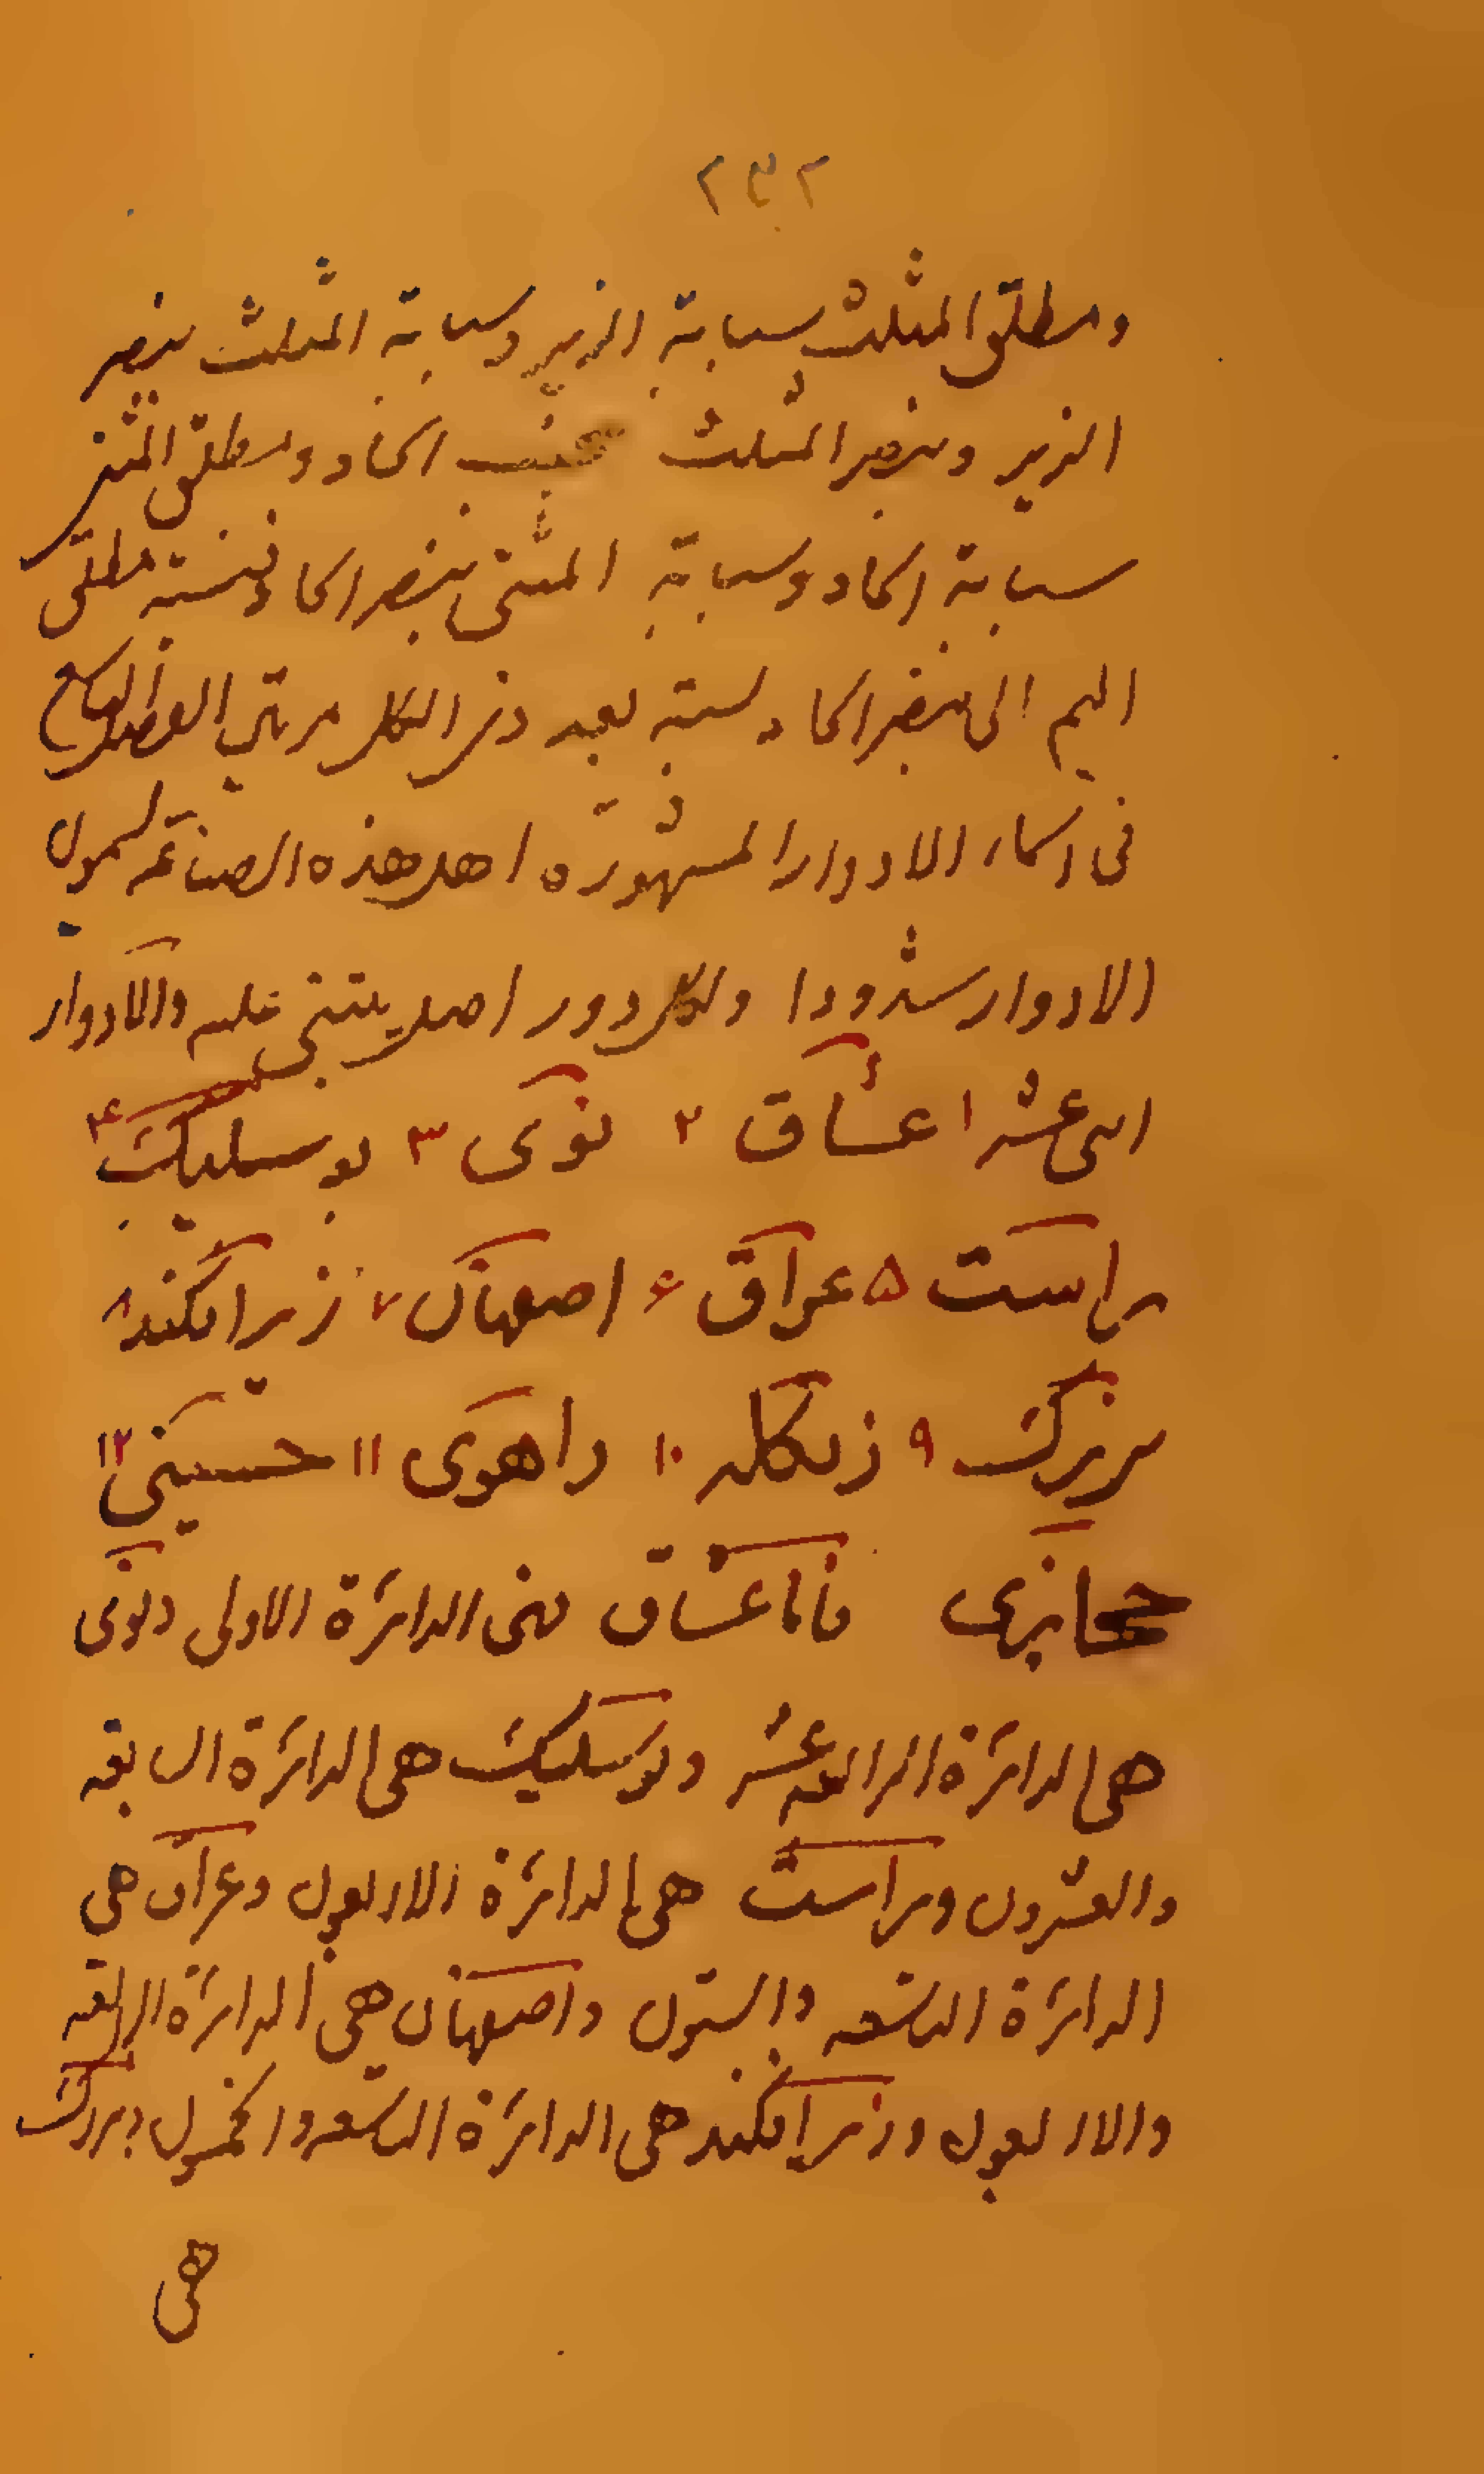 ٢٣٢
ومطلق المثلث سبابة الزير وسبابة المثلث بنصر
الزير وبنصر المثلث مجنب الحاد ومطلق المثنى
سبابة الحاد وسبابة المثنى بنصر الحاد ونسبة مطلق
البم الى بنصر الحاد نسبة بعد ذى الكل مرتين الفصل التاسع
فى اسماء الادوار المشهورة اهل هذه الصناعة يسمون
الادوار شدودا ولكل دور اصل يبتنى عليه والادوار
اثنى عشر ١ عشاق ٢ نوى ٣ بوسليك ۴
راست ۵ عراق ۶ اصفهان ٧ زيرافكند ٨
بزرك ٩ زنكله ١٠ راهوى ١١ حسينى ١٢
حجازى فاما عشاق فهى الدائرة الاولى ونوى
هى الدائرة الرابعه عشر وبوسليك هى الدائرة السابعه
والعشرون وراست هى الدائرة الاربعون وعراق هى
الدائرة التاسعه والستون واصفهان هى الدائرة الرابعه
والاربعون وزيرافكند هى الدائرة التاسعه والخمسون وبزرك
هى